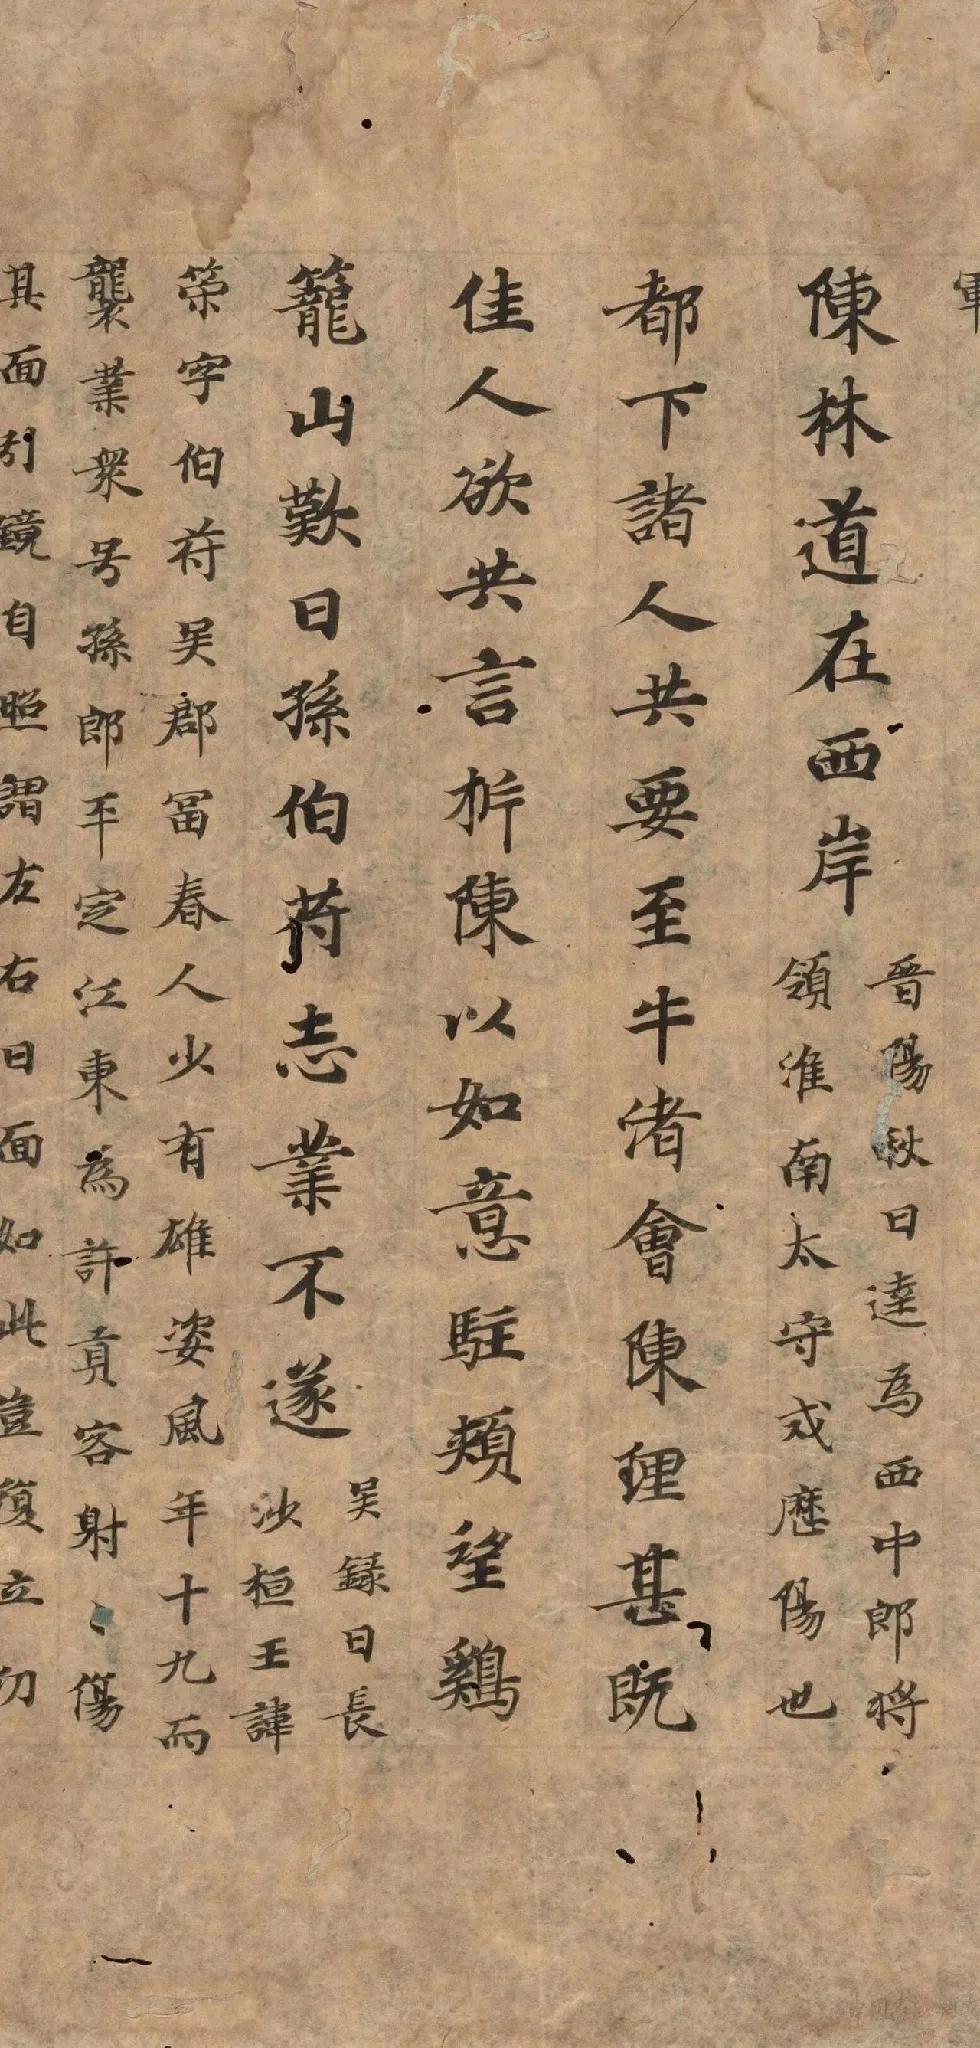 軍
陳林道在西岸
晉陽秋曰逵為西中郎将
領淮南太守戍歷陽也
都下諸人共要至牛渚會陳理甚既
佳人欲共言折陳以如意駐頬望鷄
籠山歎曰孫伯苻志業不遂
吳録曰長
沙桓王諱
筞字伯苻吳郡冨春人少有雄姿風年十九而
襲業衆号孫郎平定江東為許貢客射〻傷
其面引鏡自照謂左右曰面如此豈復立功